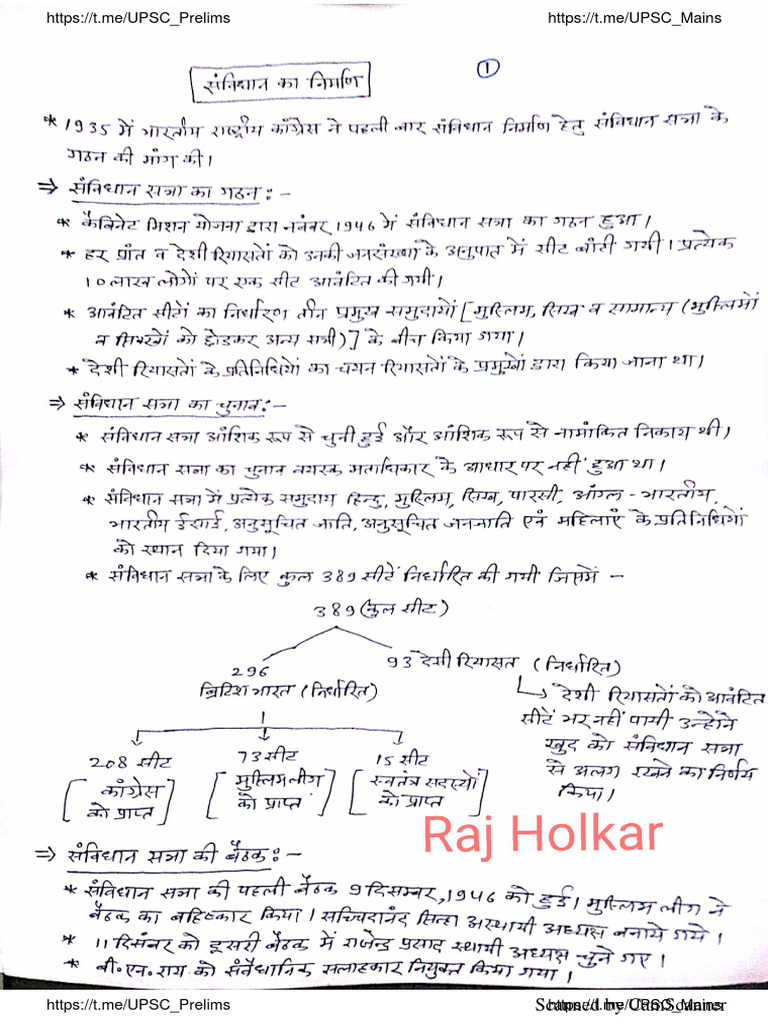 https://t.me/UPSC_Prelims https://t.me/UPSC_Mains
1
संविधान का निर्माण
* 1935 में भारतीय राष्ट्रीय काँग्रेस ने पहली बार संविधान निर्माण हेतु संविधान सभा के
गठन की मांग की।
⇒ संविधान सभा का गठन :-
* कैबिनेट मिशन योजना द्वारा नवंबर 1946 में संविधान सभा का गठन हुआ।
* हर प्रांत व देशी रियासतों को उनकी जनसंख्या के अनुपात में सीट बाँटी गयी। प्रत्येक
10 लाख लोगों पर एक सीट आवंटित की गयी।
* आवंटित सीटों का निर्धारण तीन प्रमुख समुदायों [मुस्लिम, सिख व सामान्य (मुस्लिमों
व सिक्खों को छोडकर अन्य सभी)] के बीच किया गया।
* देशी रियासतों के प्रतिनिधियों का चयन रियासतों के प्रमुखों द्वारा किया जाना था।
⇒ संविधान सभा का चुनाव :-
* संविधान सभा आंशिक रूप से चुनी हुई और आंशिक रूप से नामांकित निकाय थी।
* संविधान सभा का चुनाव वयस्क मताधिकार के आधार पर नहीं हुआ था।
* संविधान सभा में प्रत्येक समुदाय हिन्दु, मुस्लिम, सिख, पारसी, आंग्ल-भारतीय,
भारतीय ईसाई, अनुसूचित जाति, अनुसूचित जनजाति एवं महिलाएं के प्रतिनिधियों
को स्थान दिया गया।
* संविधान सभा के लिए कुल 389 सीटें निर्धारित की गयी जिसमें –
389 (कुल सीट)
296 93 देशी रियासत (निर्धारित)
ब्रिटिश भारत (निर्धारित)
देशी रियासतों को आवंटित
सीटें भर नहीं पायी उन्होने
खुद को संविधान सभा
से अलग रखने का निर्णय
किया।
208 सीट 73 सीट 15 सीट
[काँग्रेस [मुस्लिम लीग [स्वतंत्र सदस्यों
को प्राप्त] को प्राप्त] को प्राप्त]
Raj Holkar
⇒ संविधान सभा की बैठक :-
* संविधान सभा की पहली बैठक 9 दिसम्बर, 1946 को हुई। मुस्लिम लीग ने
बैठक का बहिष्कार किया। सच्चिदानंद सिन्हा अस्थायी अध्यक्ष बनाये गये।
* 11 दिसंबर को दूसरी बैठक में राजेन्द्र प्रसाद स्थायी अध्यक्ष चुने गए।
* बी. एन. राय को संवैधानिक सलाहकार नियुक्त किया गया।
https://t.me/UPSC_Prelims https://t.me/UPSC_Mains
Scanned by CamScanner